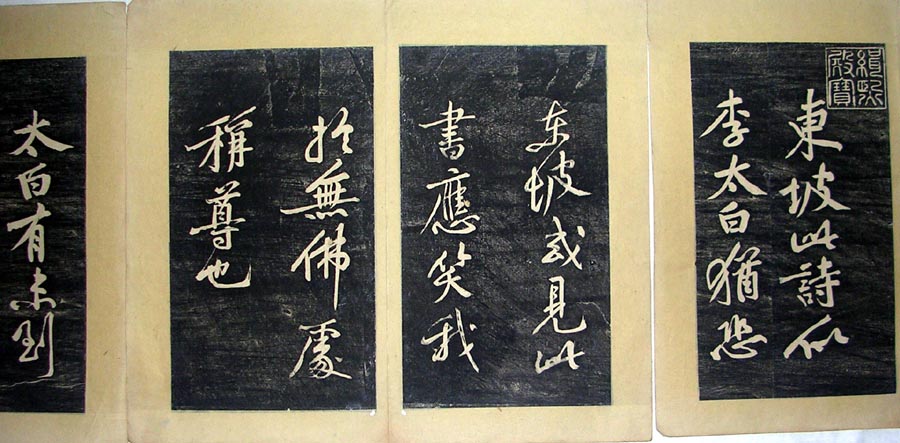 緝熙殿寶
東坡此詩似
李太白猶恐
東坡或見此
書應笑我
於無佛處
稱尊也
太白有未到